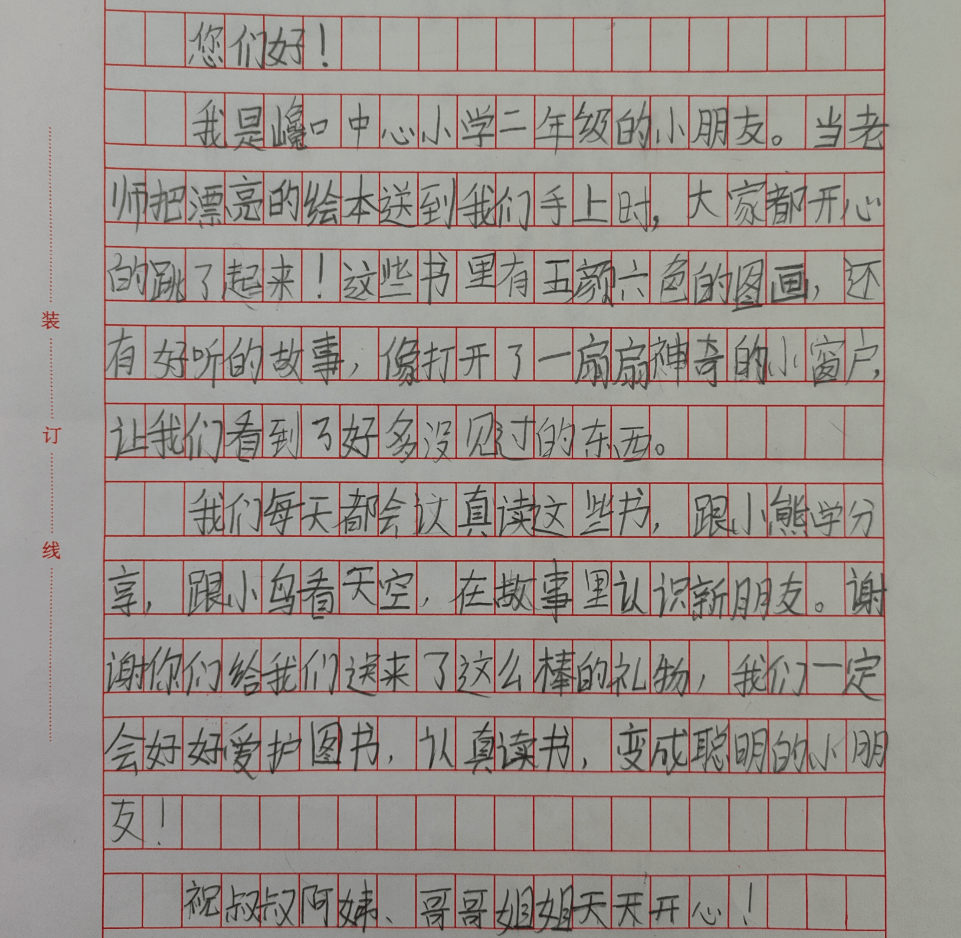 您们好！
我是巉口中心小学二年级的小朋友。当老
师把漂亮的绘本送到我们手上时，大家都开心
的跳了起来！这些书里有五颜六色的图画，还
有好听的故事，像打开了一扇扇神奇的小窗户，
让我们看到了好多没见过的东西。
我们每天都会认真读这些书，跟小熊学分
享，跟小鸟看天空，在故事里认识新朋友。谢
谢你们给我们送来了这么棒的礼物，我们一定
会好好爱护图书，认真读书，变成聪明的小朋
友！
祝叔叔阿姨、哥哥姐姐天天开心！
装
订
线